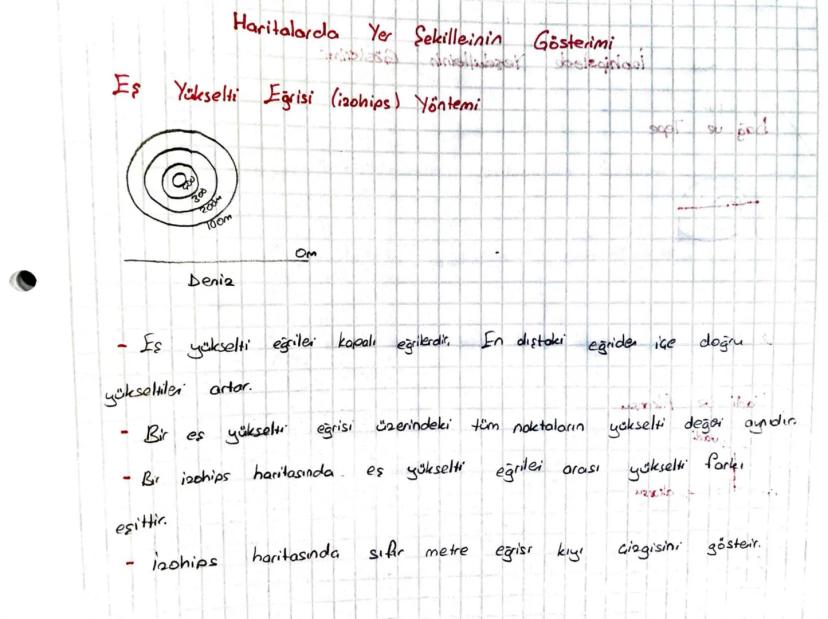 Haritalarda Yer Şekilleinin Gösterimi
Eş Yükselti Eğrisi (izohips) Yöntemi
300
200m
100m
0m
Deniz
- Eş yükselti eğrilei kapalı eğrilerdir. En dıştaki eğriden içe doğru
yükseltilei artar.
- Bir eş yükselti eğrisi üzerindeki tüm noktaların yükselti değeri aynıdır.
- Bir izohips haritasında eş yükselti eğrilei arası yükselti farkı
eşittir.
- izohips haritasında sıfır metre eğrisi kıyı çizgisini gösteir.